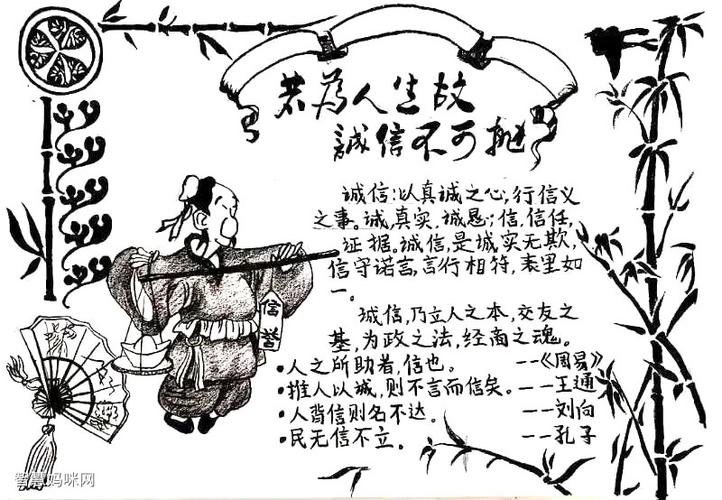 若為人生故
誠信不可抛
诚信:以真诚之心,行信义
之事。诚,真实,诚恳;信,信任,
证据。诚信,是诚实无欺,
信守诺言,言行相符,表里如
一。
诚信,乃立人之本,交友之
基,为政之法,经商之魂。
•人之所助者,信也。--《周易》
•推人以诚,则不言而信矣。--王通
•人背信则名不达。--刘向
•民无信不立。--孔子
信誉
智慧妈咪网